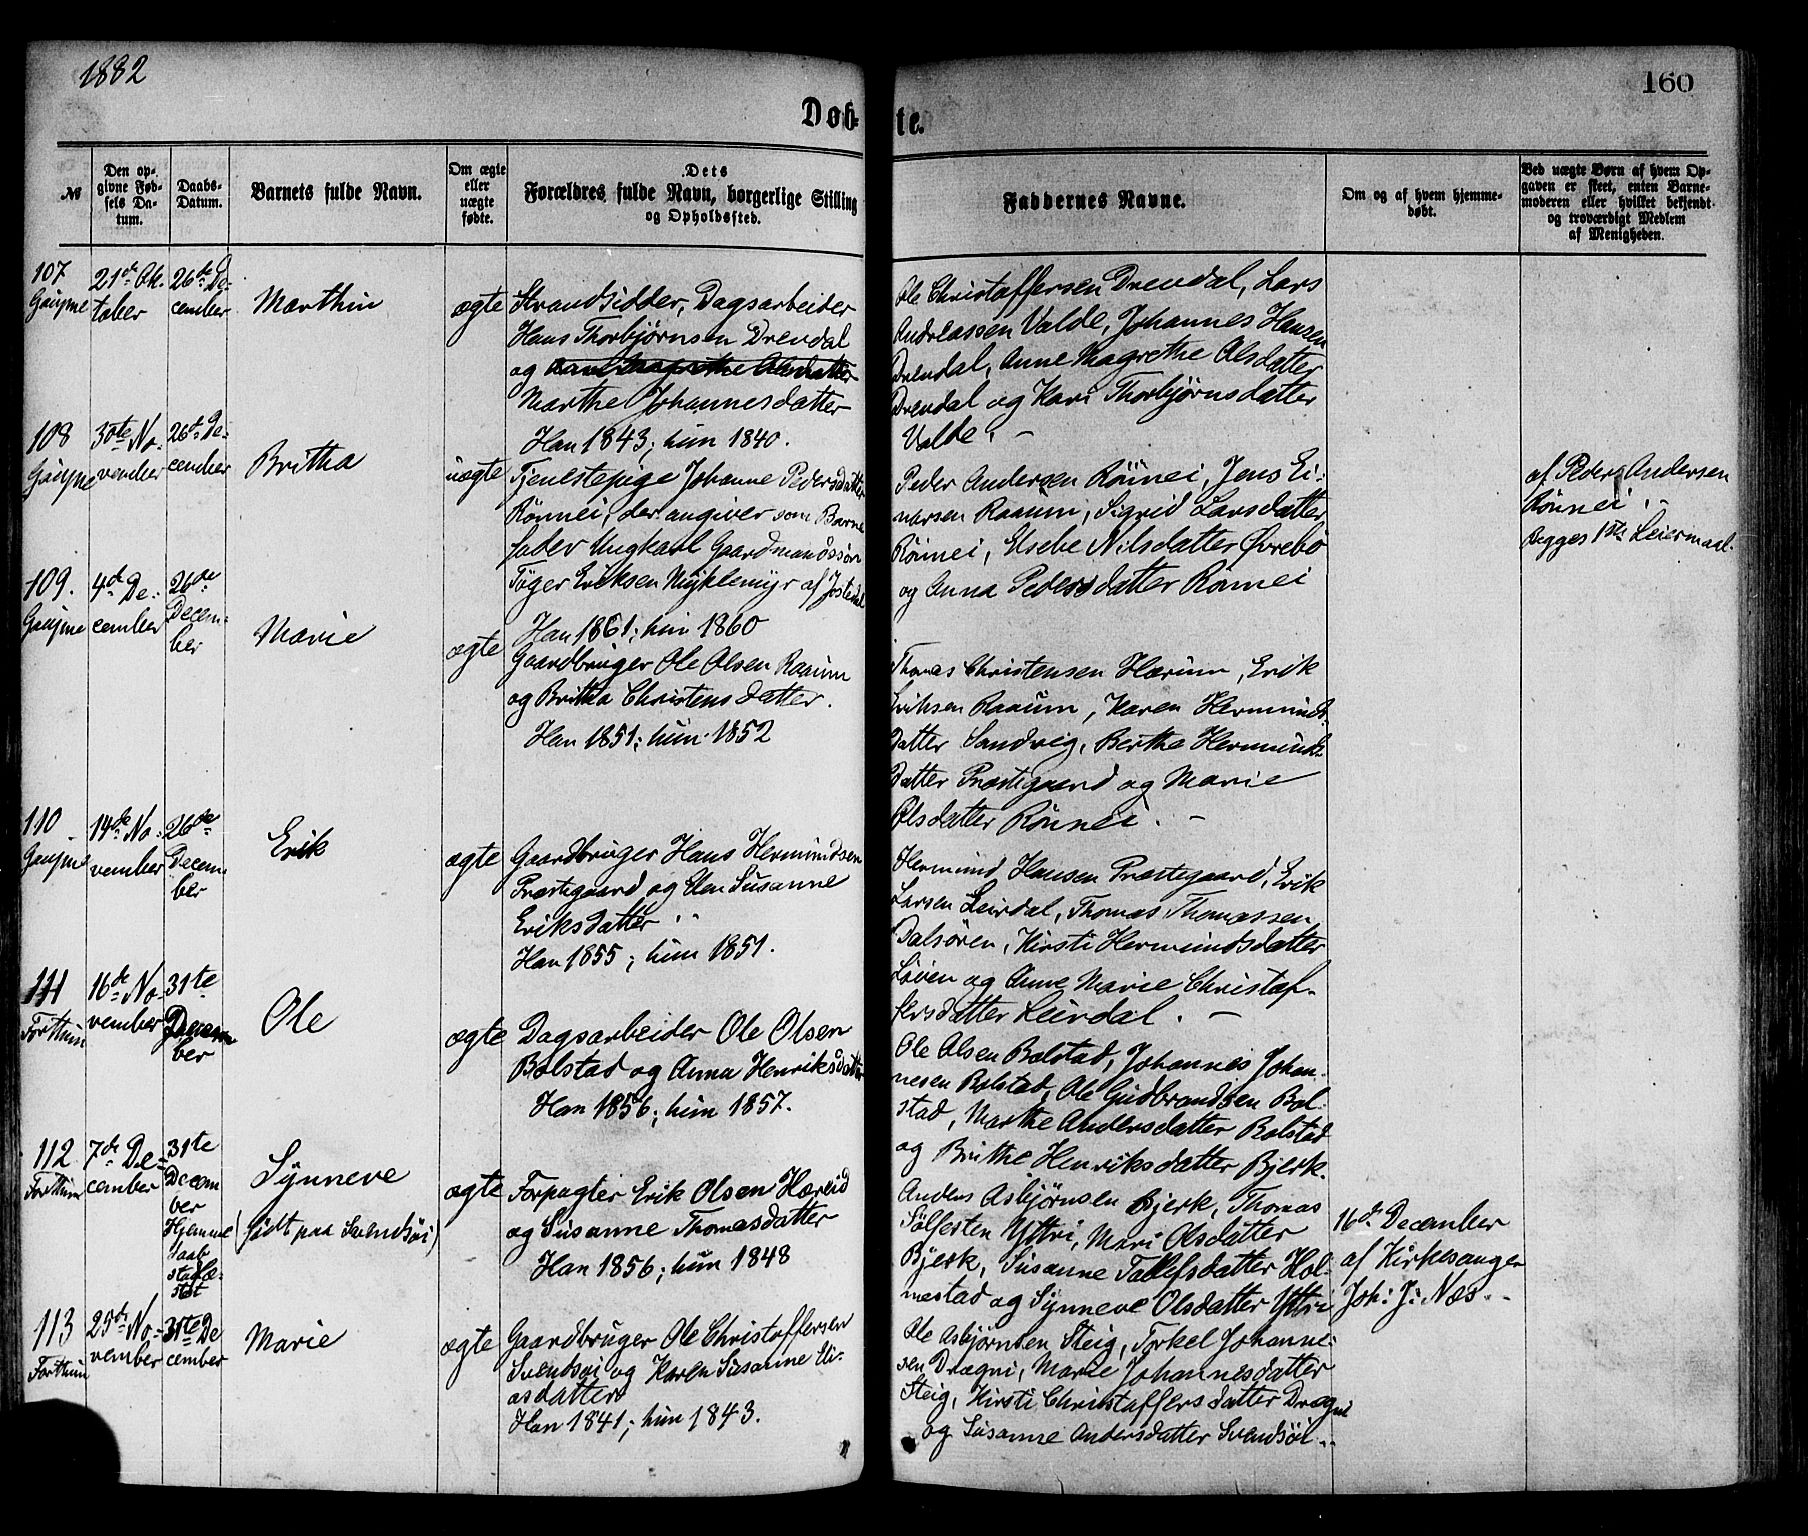 1882
160
Døb-
te.
№
Den op-
givne Fød-
sels Da-
tum.
Daabs-
Datum.
Barnets fulde Navn.
Om ægte
eller
uægte
fødte.
Dets
Forældres fulde Navn, borgerlige Stilling
og Opholdssted.
Faddernes Navne.
Om og af hvem hjemme-
døbt.
Ved uægte Børn af hvem Op-
gaven er skeet, enten Barne-
moderen eller hvilket bekjendt
og troværdigt Medlem
af Menigheden.
107
Gaupne
21de Ok-
tober
26de De-
cember
Marthin
ægte
Strandsidder, Dagsarbeider
Hans Thorbjørnsen Drevdal
og Anne Magrethe Olsdatter
Marthe Johannesdatter
Han 1843; hun 1840.
Ole Christoffersen Drevdal, Lars
Andreassen Valde, Johannes Hansen
Drevdal, Anne Magrethe Olsdatter
Drevdal og Kari Thorbjørnsdatter
Valde. –
108
Gaupne
30te No-
vember
26de De-
cember
Britha
uægte
Tjenestepige Johanne Pedersdatter
Rönnei, der angiver som Barne
fader Ungkarl Gaardmandssøn
Tøger Eriksen Myklemyr af Jostedal
Han 1861; hun 1860
Peder Andersen Rönnei, Jens Ei-
narsen Raaum, Sigrid Larsdatter
Rönnei, Elsebe Nilsdatter Øvrebø
og Anna Pedersdatter Rönnei
af Peder Andersen
Rönnei.
begges 1ste Leiermaal.
109.
Gaupne
4de De-
cember
26de
Decem-
ber
Marie
ægte
Gaardbruger Ole Olsen Raaum
og Britha Christensdatter.
Han 1851; hun 1852
Thomas Christensen Hærum, Erik
Eriksen Raaum, Karen Hermunds
datter Sandvig, Berthe Hermunds
datter Præstegaard og Marie
Olsdatter Rönnei. –
110
Gaupne
14de No-
vember
26de
Decem-
ber
Erik
ægte
Gaardbruger Hans Hermundsen
Præstegaard og Elen Susanne
Eriksdatter
Han 1855; hun 1851.
Hermund Hansen Præstegaard, Erik
Larsen Leirdal, Thomas Thomassen
Dalsören, Kirsti Hermundsdatter
Löven og Anne Marie Christof-
fersdatter Leirdal. –
111
Forthun
16de No-
vember
31te
Decem
ber
Ole
ægte
Dagsarbeider Ole Olsen
Bolstad og Anna Henriksdatter
Han 1856; hun 1857.
Ole Olsen Bolstad, Johannes Johan-
nesen Bolstad, Ole Gudbrandsen Bol-
stad, Marthe Andersdatter Bolstad
og Brithe Henriksdatter Bjerk.
112
Forthun
7de De-
cember
31te
Decem
ber
Hjemme
daab
stadfæ-
stet
Synneve
(födt paa Svendsöi)
ægte
Forpagter Erik Olsen Hæreid
og Susanne Thomasdatter
Han 1856; hun 1848
Anders Asbjørnsen Bjerk, Thomas
Sölfesten Yttri, Mari Olsdatter
Bjerk, Susanne Tollefsdatter Hol-
mestad og Synneve Olsdatter Yttri
16de December
af Kirkesanger
Joh: J: Næs.
113
Forthun
25de No-
vember
31te De
cember
Marie
ægte
Gaardbruger Ole Christoffersen
Svendsöi og Karen Susanne Eli-
asdatter
Han 1841; hun 1843.
Ole Asbjørnsen Steig, Torkel Johanne-
sen Drægni, Marie Johannesdatter
Steig, Kirsti Christoffersdatter Drægni
og Susanne Andersdatter Svendsöi.